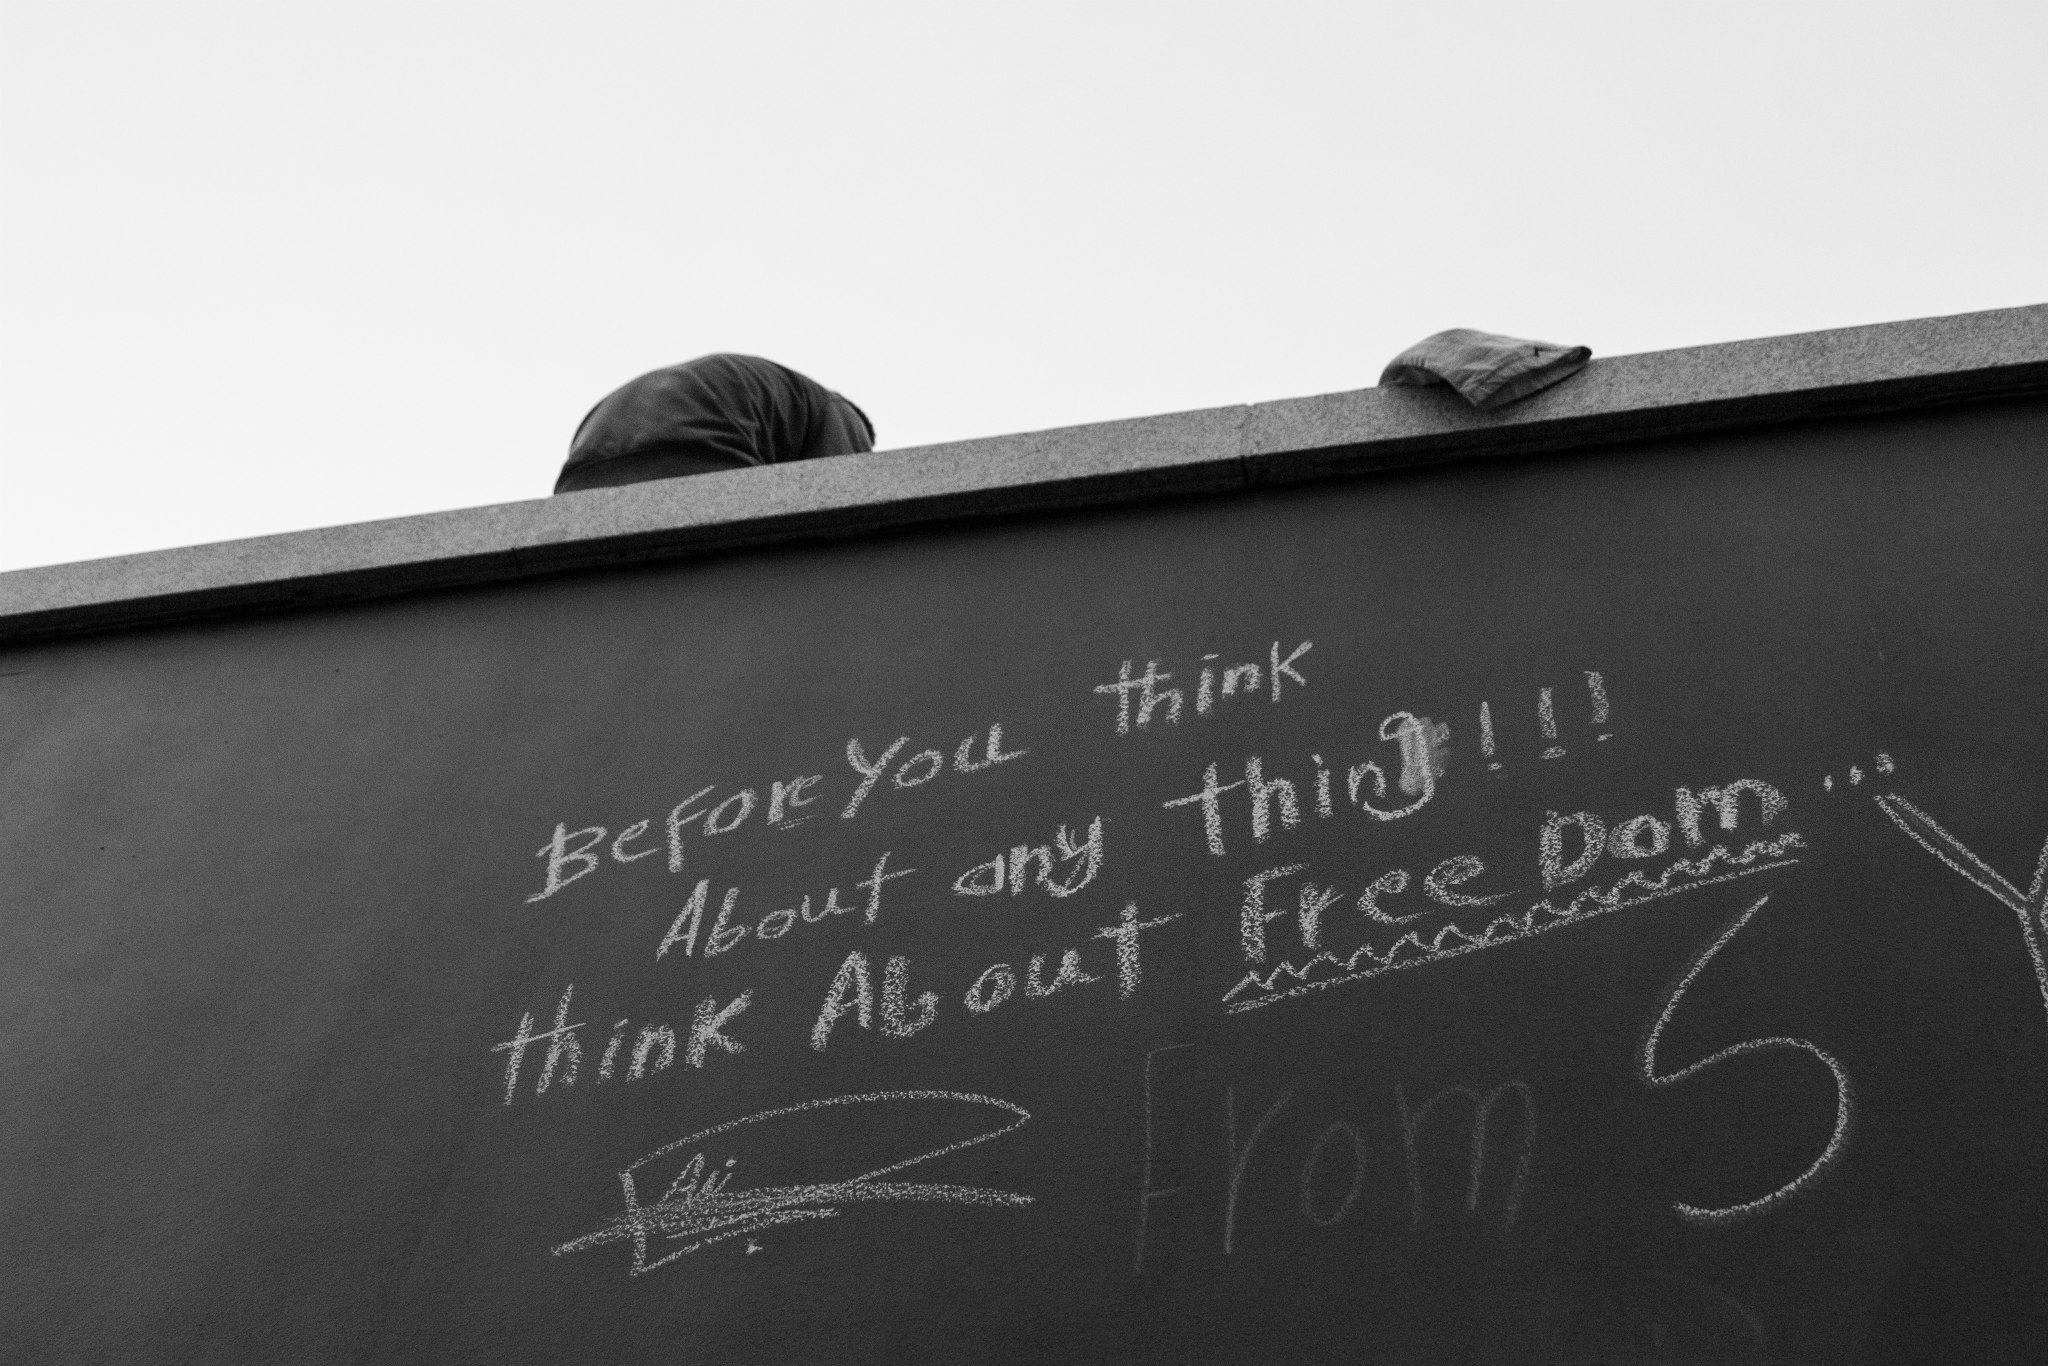 Before You think
About any thing!!!
think About Free Dom...
From S